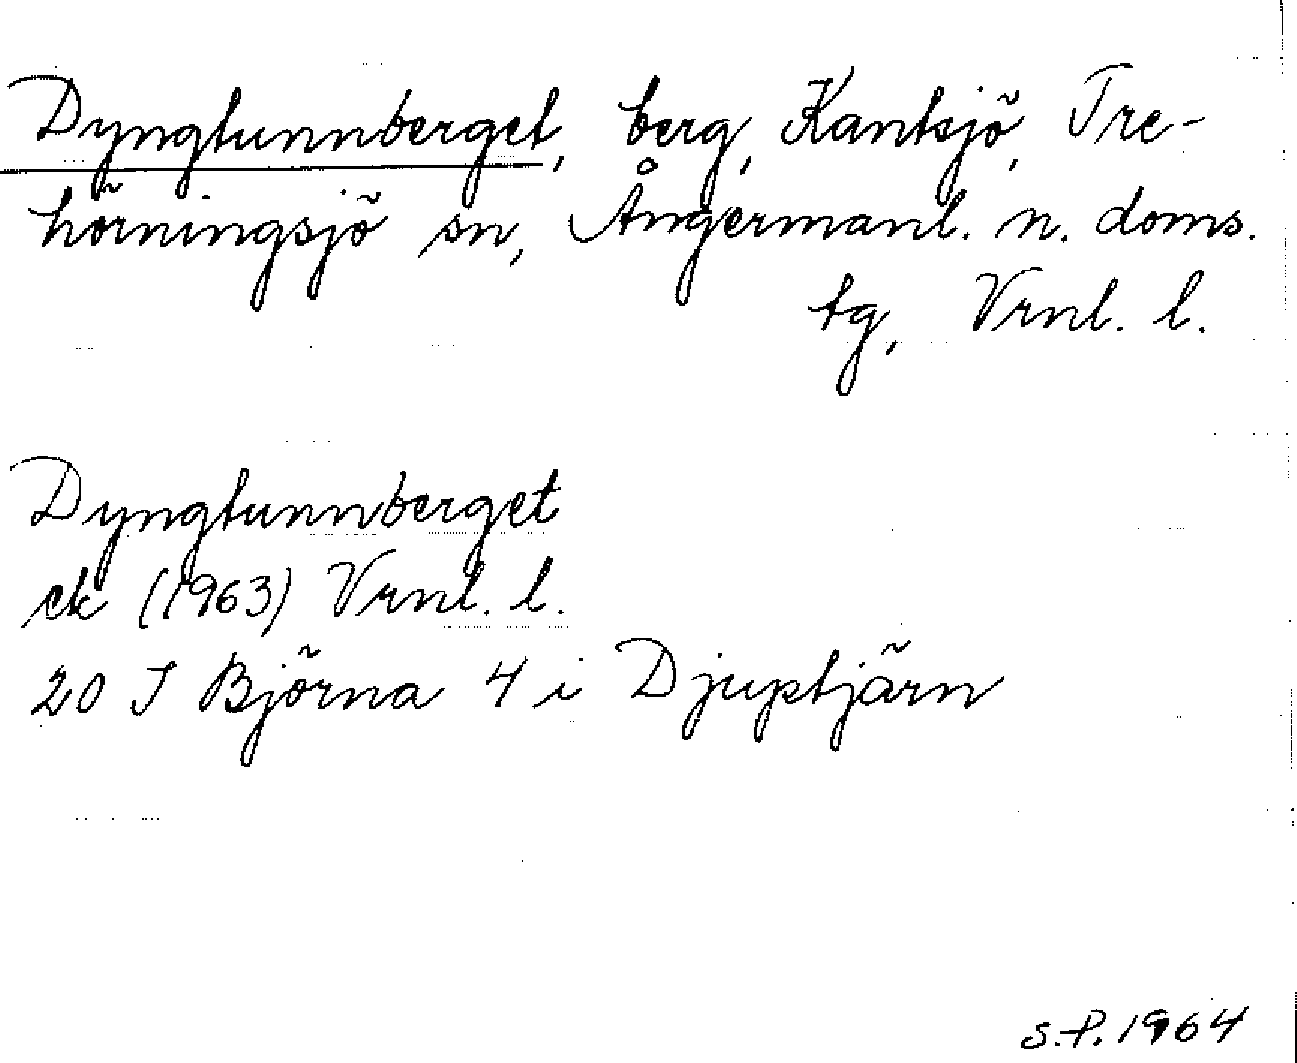 Dyngtunnberget, berg, Kantsjö, Tre-
hörningsjö sn, Ångermanl. n. doms.
tg, Vrnl. l.
Dyngtunnberget
ek (1963) Vrnl. l.
20 I Björna 4 i Djuptjärn
S.P. 1964